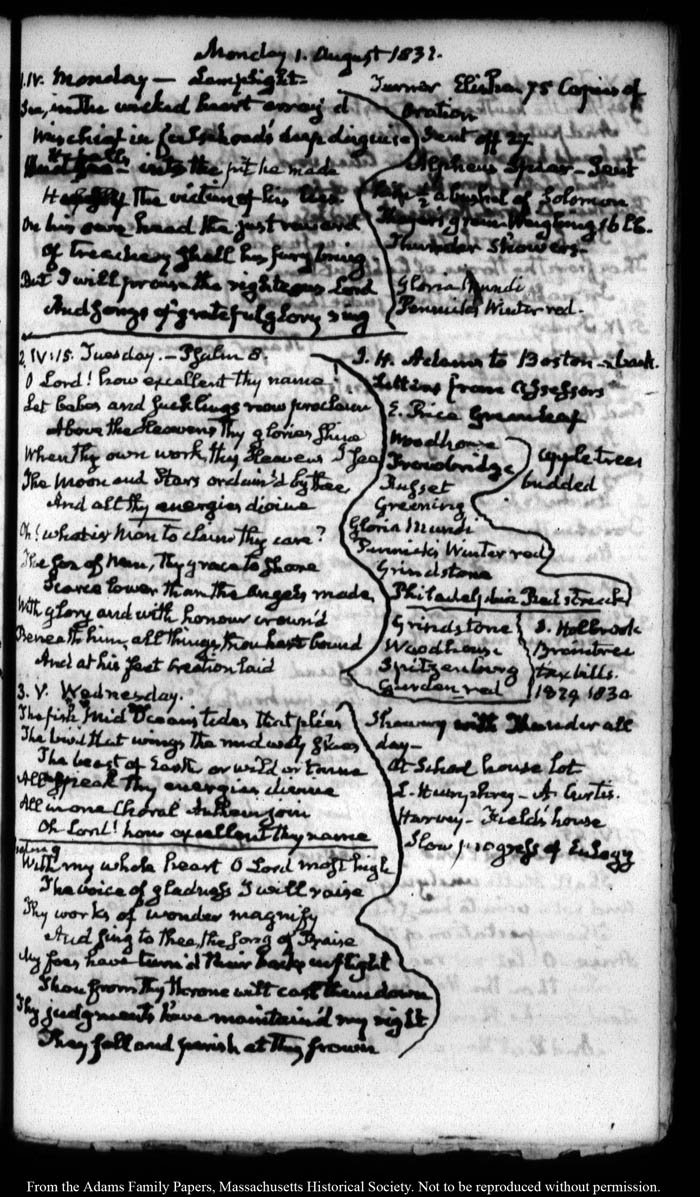 Monday 1. August 1831.
1. IV. Monday — Lamplight.
See, in the wicked heart array'd
Mischief in falsehood's deep disguise
He falls into the pit he made
The victim of his lies
On his own head the just reward
Of treachery shall his fury bring
But I will praise the righteous Lord
And songs of grateful glory sing
Turner Elisha 75 Copies of
oration
Sent off 27
Alpheus Spear — Sent
½ a bushel of Solomon
Thayer's grain weighing 16 lb.
Thunder Showers.
Gloria Mundi
Pennick's Winter red.
2. IV:15. Tuesday. — Psalm 8.
O Lord! how excellent thy name!
Let babes and sucklings now proclaim
Above the Heavens, thy glories shine
When thy own work, thy Heavens I see
The Moon and Stars ordain'd by thee,
And all thy energies divine
Oh! what is Man to claim thy care?
The Son of Man, thy grace to share
Scarce lower than the Angels made,
With glory and with honour crown'd
Beneath him, all things thou hast bound
And at his feet Creation laid
I. H. Adams to Boston & back.
Letters from Assessors
E. Price Greenleaf
Woodhouse
Trowbridge
Russet
Greening
apple trees
budded
Gloria Mundi
Pennick's Winter red
Grindstone
Philadelphia Red streak
Grindstone
Woodhouse
Spitzenburg
Garden red
D. Holbrook
Braintree
tax bills.
1829 1830
3. V. Wednesday.
The fish, 'Mid Ocean's tides that plies
The bird that wings the midway skies
The beast of Earth or wild or tame
All speak thy energies divine
All in one Choral Anthem join
Oh Lord! how excellent thy name
Showery with Thunder all
day —
At School house lot
L. Humphrey — A. Curtis.
Harvey — Field's house
Slow progress of Eulogy
With my whole heart O Lord most high
The voice of gladness I will raise
Thy works of wonder magnify
And sing to thee, the song of Praise
My foes have turn'd their backs in flight
Thou from thy throne wilt cast them down
Thy judgments have maintain'd my right
They fall and perish at thy frown
From the Adams Family Papers, Massachusetts Historical Society. Not to be reproduced without permission.